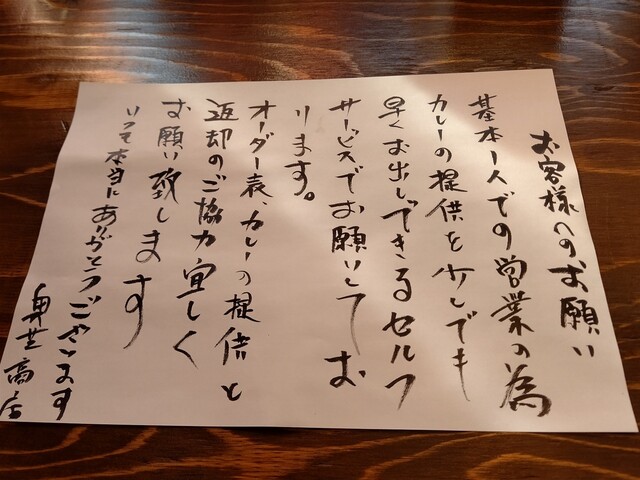 お客様へのお願い
基本1人での営業の為
カレーの提供を少しでも
早くお出しできるセルフ
サービスでお願いして お
ります。
オーダー表、カレーの提供と
返却のご協力宜しく
お願い致します
いつも本当にありがとうございます
奥芝商店